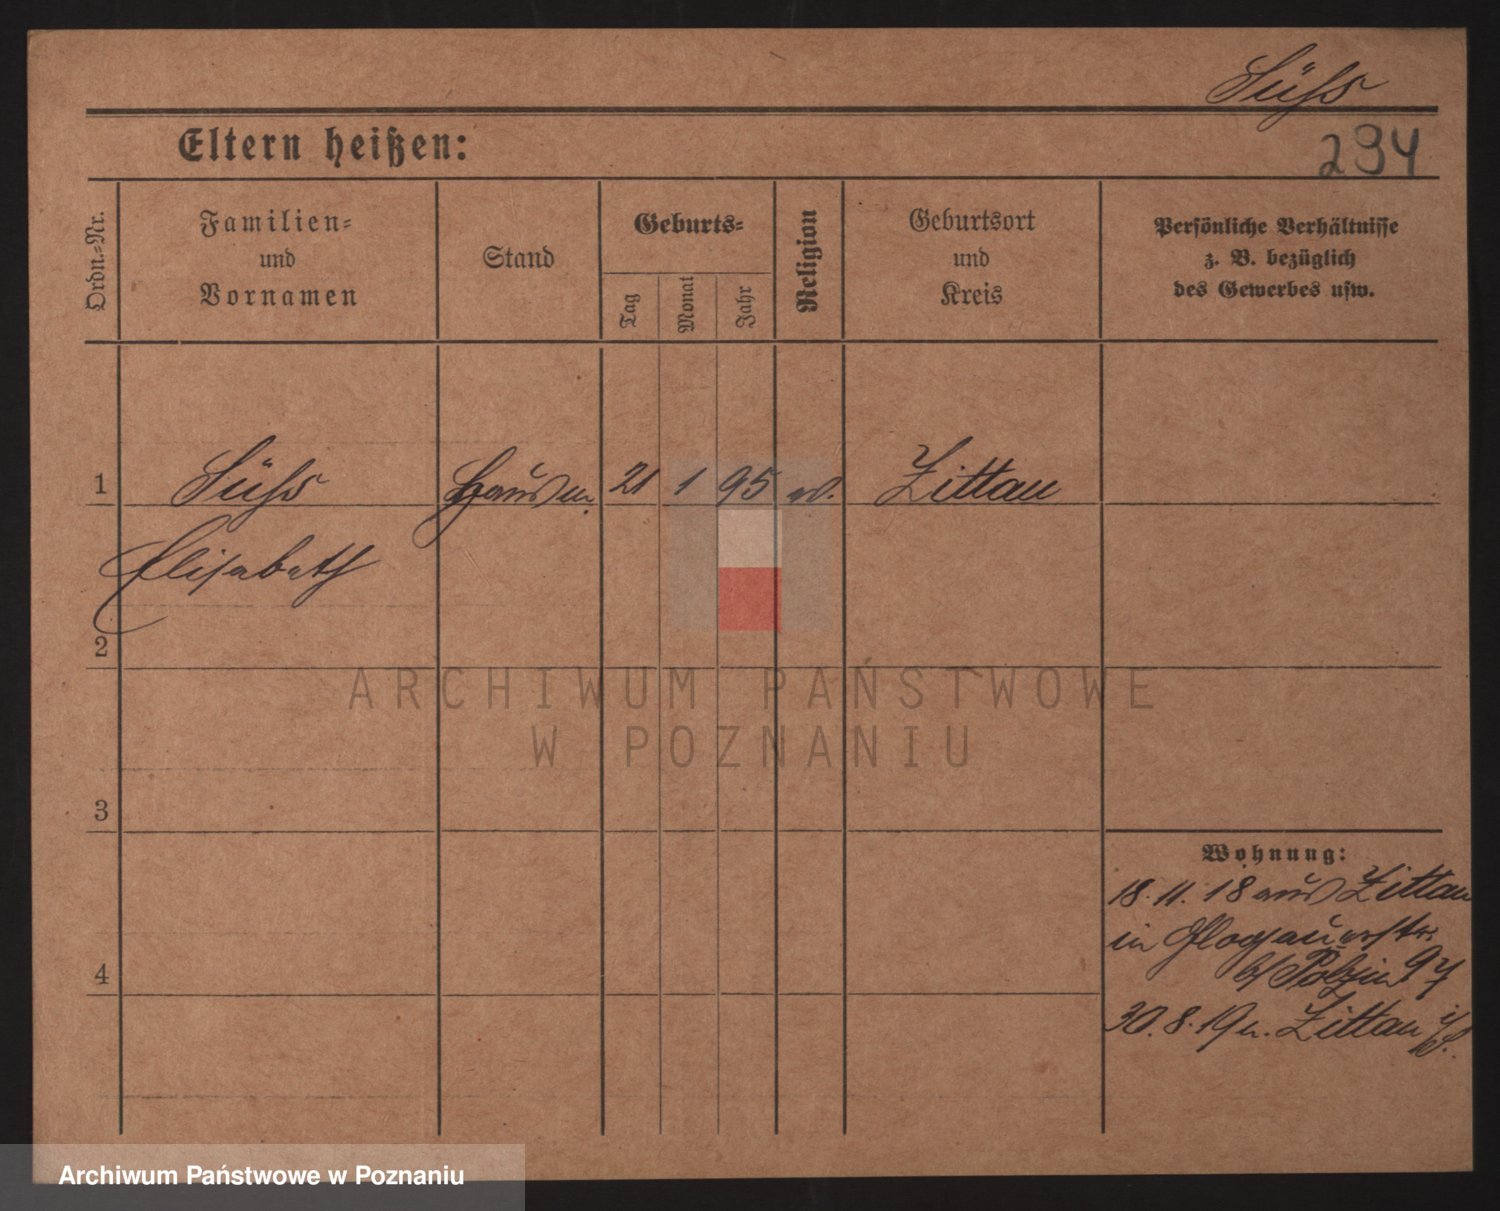 Süß
234
Eltern heißen:
Ordn.-Nr.
Familien-
und
Vornamen
Stand
Geburts-
Tag
Monat
Jahr
Religion
Geburtsort
und
Kreis
Persönliche Verhältnisse
z. B. bezüglich
des Gewerbes usw.
1 Süß 21 1 95 Zittau
Elisabeth
2
ARCHIWUM PAŃSTWOWE
W POZNANIU
3
4
Wohnung:
18. 11. 18 aus Zittau
in Glogauerstr.
b/ Polzin
30. 8. 19 n. Zittau i/S.
Archiwum Państwowe w Poznaniu